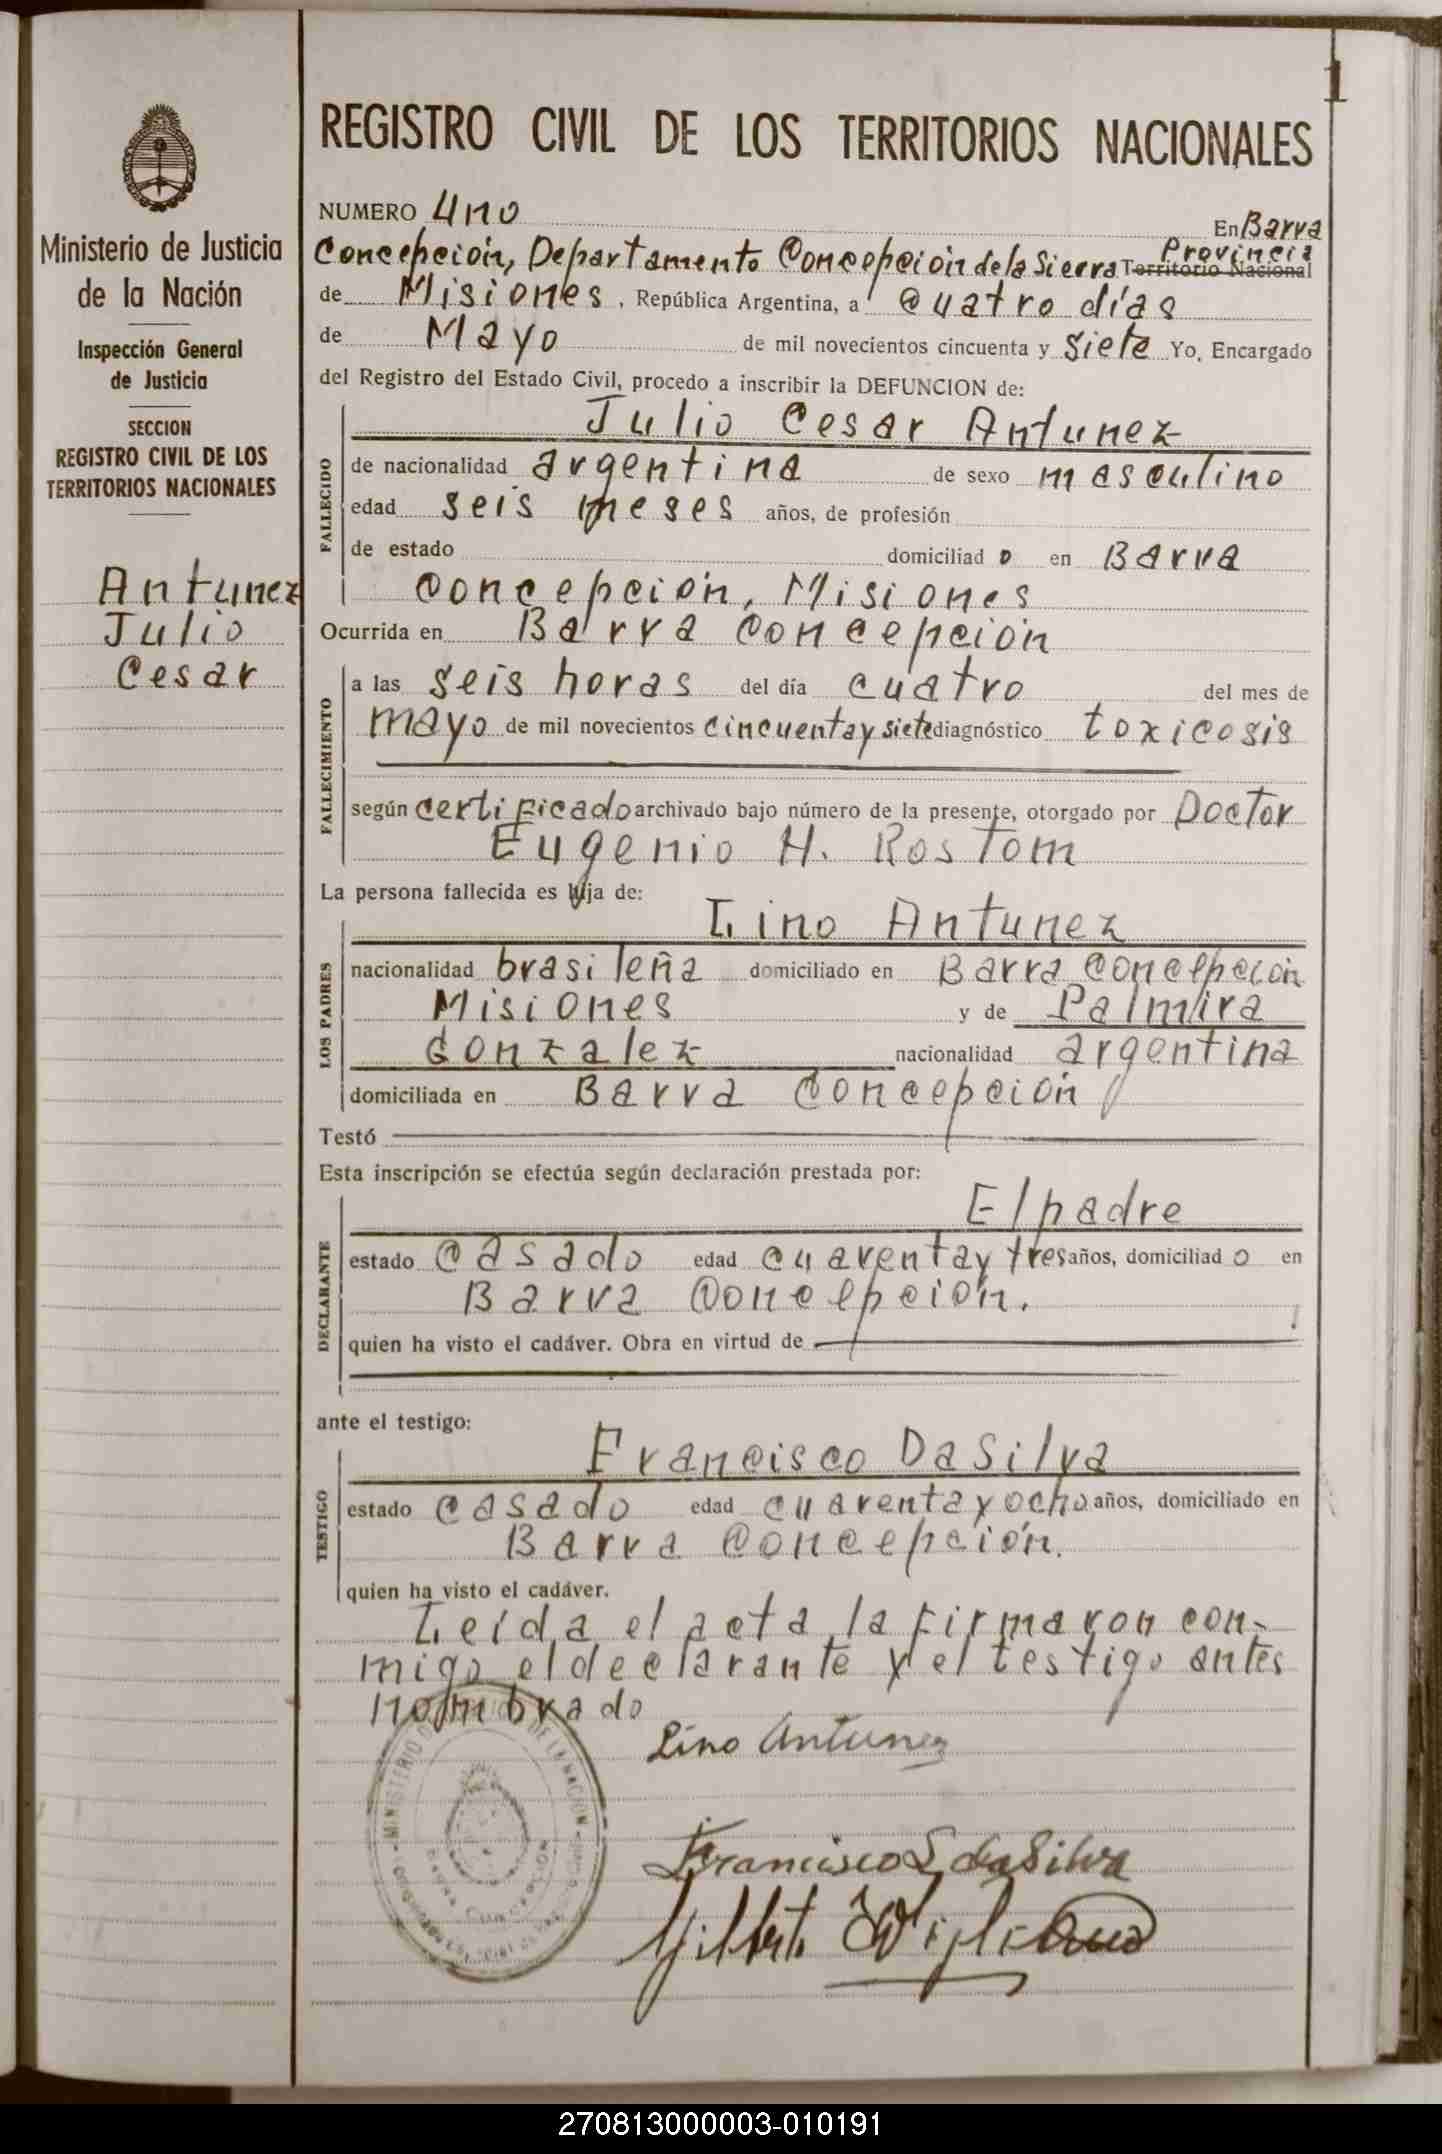 1
Ministerio de Justicia
de la Nación
Inspección General
de Justicia
SECCION
REGISTRO CIVIL DE LOS
TERRITORIOS NACIONALES
Antunez
Julio
Cesar
REGISTRO CIVIL DE LOS TERRITORIOS NACIONALES
NUMERO Uno En Barra
Concepción, Departamento Concepción de la Sierra Territorio Nacional Provincia
de Misiones, República Argentina, a Cuatro días
de Mayo de mil novecientos cincuenta y Siete Yo, Encargado
del Registro del Estado Civil, procedo a inscribir la DEFUNCION de:
Julio Cesar Antunez
FALLECIDO
de nacionalidad argentina de sexo masculino
edad seis meses años, de profesión
de estado domiciliado en Barra
Concepción, Misiones
Ocurrida en Barra Concepción
FALLECIMIENTO
a las seis horas del día cuatro del mes de
mayo de mil novecientos cincuenta y siete diagnóstico toxicosis
según certificado archivado bajo número de la presente, otorgado por Doctor
Eugenio H. Rostom
La persona fallecida es hija de:
Lino Antunez
LOS PADRES
nacionalidad brasileña domiciliado en Barra Concepción
Misiones y de Palmira
Gonzalez nacionalidad argentina
domiciliada en Barra Concepción
Testó
Esta inscripción se efectúa según declaración prestada por:
El padre
DECLARANTE
estado casado edad cuarenta y tres años, domiciliado en
Barra Concepción.
quien ha visto el cadáver. Obra en virtud de
ante el testigo:
Francisco DaSilva
TESTIGO
estado casado edad cuarenta y ocho años, domiciliado en
Barra Concepción.
quien ha visto el cadáver.
Leída el acta la firmaron con-
migo el declarante y el testigo antes
nombrado
Lino Antunez
Francisco L daSilva
MINISTERIO DE JUSTICIA DE LA NACION
BARRA CONCEPCION
270813000003-010191